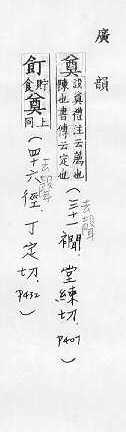 廣韻
奠 設奠禮注云薦也陳也書傳云定也(去聲 三十二襉.堂練切.P407)
飣 貯食 奠 上同(去聲 四十六徑.丁定切.P432)